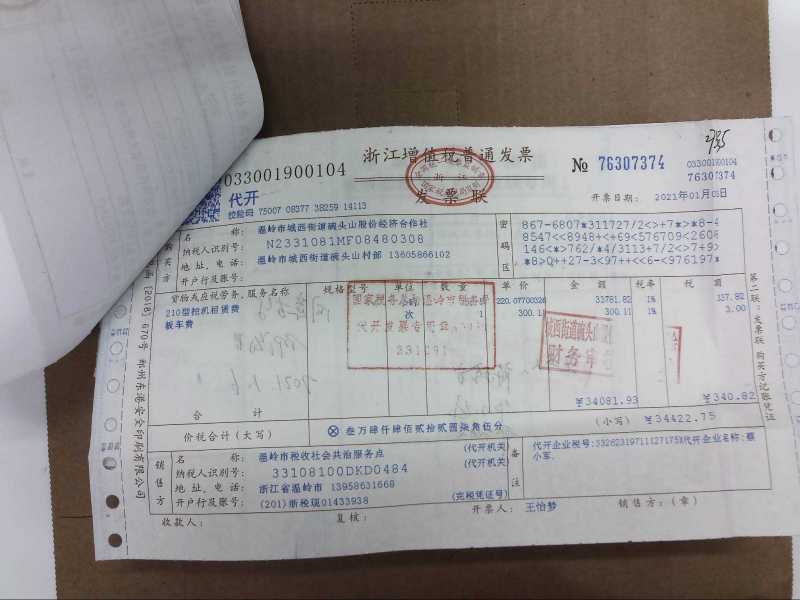 2735
033001900104
浙江增值税普通发票
发票联
№ 76307374
033001900104
76307374
代开
校验码 75007 08377 38259 14113
开票日期: 2021年01月05日
购买方
名称: 温岭市城西街道碗头山股份经济合作社
纳税人识别号: N2331081MF08480308
地址、电话: 温岭市城西街道碗头山村部 13605866102
开户行及账号:
密码区
867-6807*311727/2<>+7*>*8-4
8547<<8948++69<576709<2608
146<*>762/*4/3113+7/2<7+9>
*8>Q++27-3<97+<<6-<976197*
货物或应税劳务、服务名称 规格型号 单位 数量 单价 金额 税率 税额
210型挖机租赁费 时 220.07700326 33781.82 1% 337.82
板车费 次 1 300.11 300.11 1% 3.00
国家税务总局温岭市税务局
代开发票专用章
331081
城西街道碗头山
财务专
2021.1.6
合计 ¥34081.93 ¥340.82
价税合计(大写) ⊗ 叁万肆仟肆佰贰拾贰圆柒角伍分 (小写) ¥34422.75
销售方
名称: 温岭市税收社会共治服务点 (代开机关)
纳税人识别号: 33108100DKD0484 (代开机关)
地址、电话: 浙江省温岭市 13958631668
开户行及账号: (201)浙税现01433938 (完税凭证号)
备注
代开企业税号:33262319711127175X代开企业名称:蔡
小军.
收款人: 复核: 开票人: 王怡梦 销售方:(章)
第二联:发票联 购买方记账凭证
[2018] 670号 郑州东港安全印刷有限公司